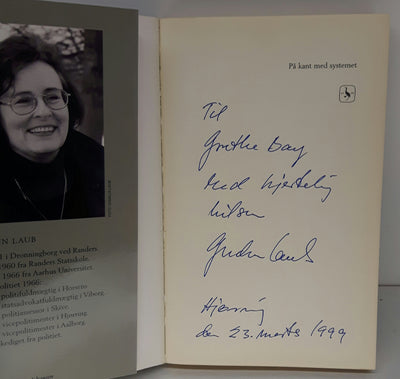 N LAUB
i Dronningborg ved Randers
1960 fra Randers Statsskole.
1966 fra Aarhus Universitet.
politiet 1966:
politifuldmægtig i Horsens
statsadvokatfuldmægtig i Viborg.
politiassessor i Skive.
vicepolitimester i Hjørring.
vicepolitimester i Aalborg.
kediget fra politiet.
På kant med systemet
Til
Grethe Bay
Med hjertelig
hilsen
Gudrun Laub
Hjørring
den 23. marts 1999